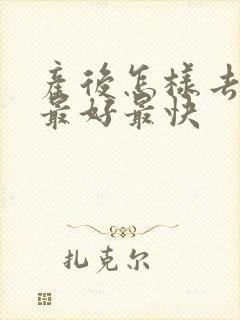 產後怎樣去
最好最快
扎克尔